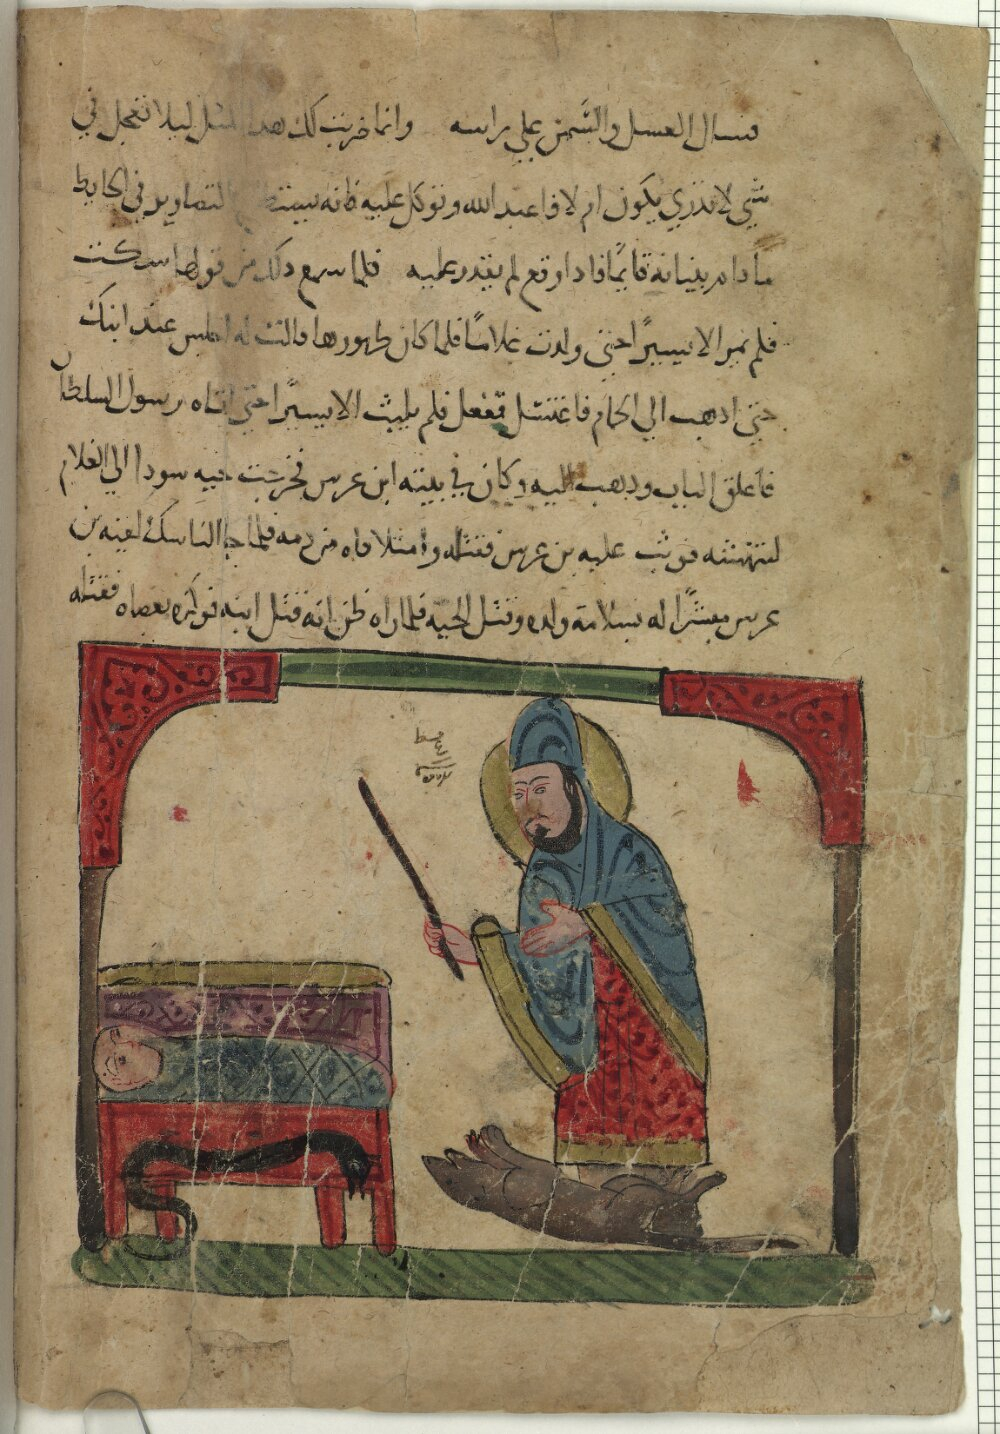 فسال العسل والسمن علي راسه وانما ضربت لك هدا المثل ليلا تعجل في
شي لا تدري يكون ام لا فاعبد الله وتوكل عليه فانه التصاوير في الحايط
ما دام بنيانه قايمًا فادا وقع لم يقدر عليه فلما سمع دلك من قولها سكت
فلم تمر الا يسيرًا حتي ولدت غلامًا فلما كان طهورها قالت له اجلس عند ابنك
حتي ادهب الي الحمام فاغتسل ففعل فلم يلبث الا يسيرًا حتي اتاه رسول السلطان
فاغلق الباب ودهب اليه وكان في بيته ابن عرس فخرجت حيه سودا الي الغلام
لتنهشه فوثب عليه بن عرس فقتله وامتلا فاه من دمه فلما جا الناسك لقيه بن
عرس مبشرًا له بسلامة ولده وقتل الحيه فلما راه ظن انه قتل ابنه بعصاه فقتله